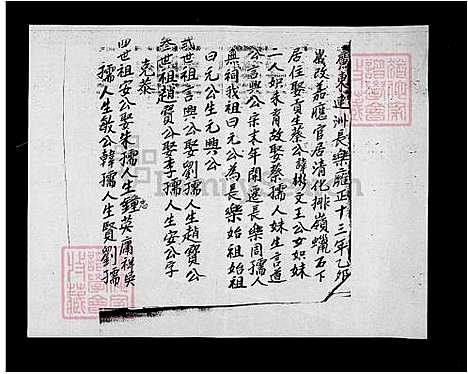 廣東連州長樂雍正十三年乙卯
歲改嘉應官居清化排嶺蠟石下
居住娶貢生蔡公諱彬文王公女姒妹
二人姒未育故娶蔡孺人妹生言道
公言興公宋末年間遷長樂周孺人
無祠我祖曰元公為長樂始祖始祖
曰元公生元興公
貳世祖言興公娶劉孺人生趙寶公
叁世祖趙寶公娶李孺人生安公子
克恭
四世祖安公娶朱孺人生鐘英庸祥吳
孺人生敏公韓孺人生賢劉孺